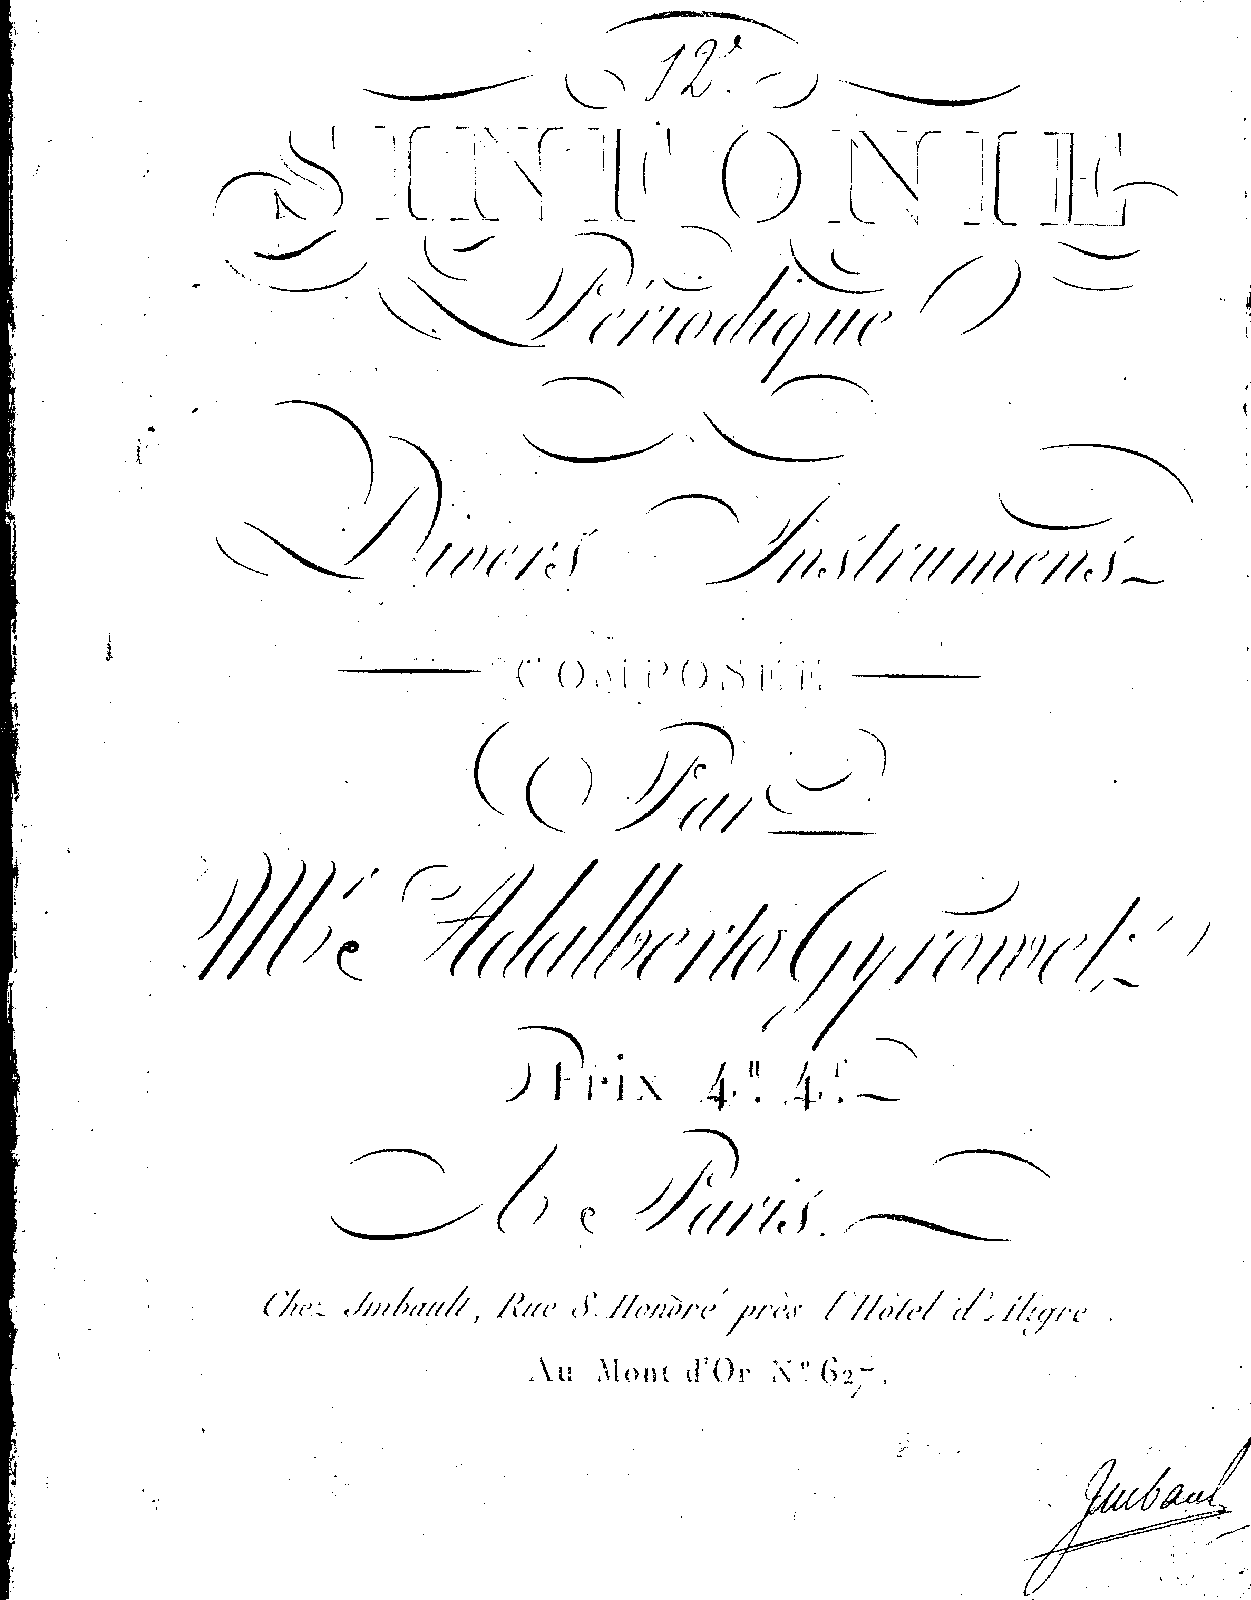 12e.
SINFONIE
Périodique
Divers Instrumens
COMPOSÉE
Par
Mr. Adalberto Gyrowetz
Prix 4". 4s.
Paris.
Chez Imbault, Rue S. Honoré près l'Hôtel d'Aligre.
Au Mont d'Or No. 627.
Imbault